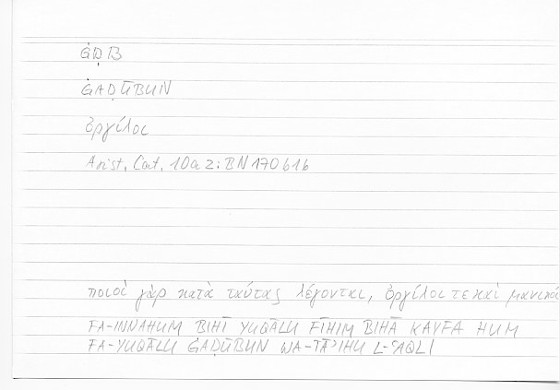 ĠḌB
ĠAḌŪBUN
ὀργίλοι
Arist. Cat. 10a2: BN 170b16
ποιοὶ γὰρ κατὰ ταύτας λέγονται, ὀργίλοι τε καὶ μανικοί
FA-INNAHUM BIHĪ YUQĀLU FĪHIM BIHĀ KAYFA HUM
FA-YUQĀLU ĠAḌŪBUN WA-TĀʾIHU L-ʿAQLI